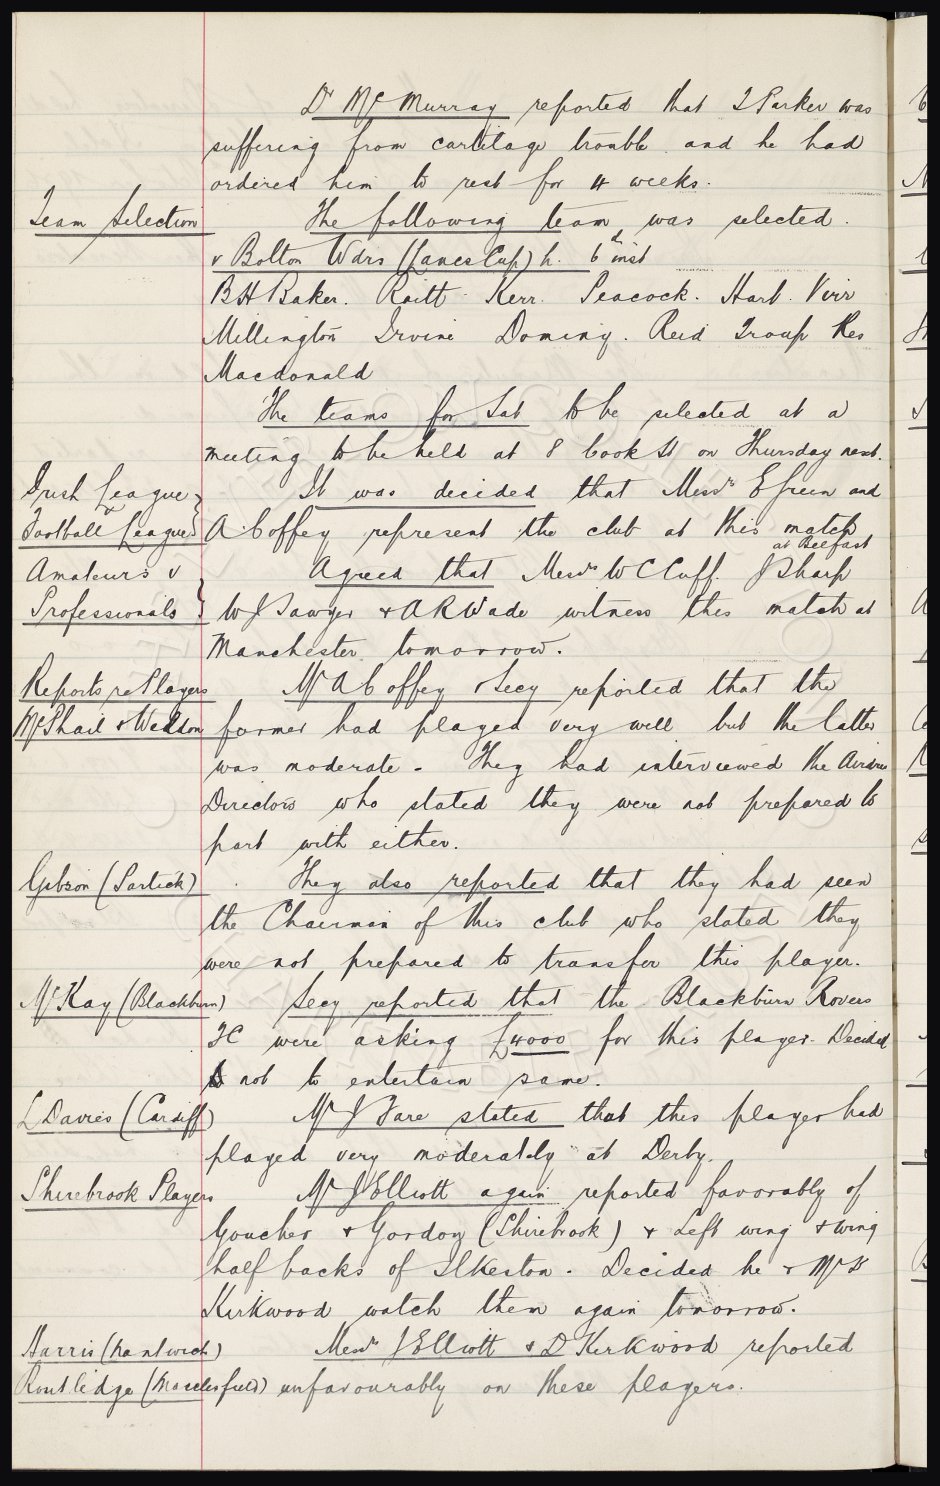 Dr McMurray reported that J Parker was
suffering from cartilage trouble and he had
ordered him to rest for 4 weeks.
Team Selection The following team was selected.
v Bolton Wdrs (Lancs Cup) h. 6th inst
B H Baker. Raitt Kerr. Peacock. Hart. Virr
Millington Irvine Dominy. Reid Troup Res
Macdonald
The teams for Sat to be selected at a
meeting to be held at 8 Cook St on Thursday next.
Irish League It was decided that Messrs E Green and
v
Football League A Coffey represent the club at this match
at Belfast
Amateurs v Agreed that Messrs W C Cuff. J Sharp
Professionals W J Sawyer & A R Wade witness this match at
Manchester tomorrow.
Reports re Players Mr A Coffey & Secy reported that the
McPhail & Weldon former had played very well but the latter
was moderate. They had interviewed the Airdrie
Directors who stated they were not prepared to
part with either.
Gibson (Partick) They also reported that they had seen
the Chairman of this club who stated they
were not prepared to transfer this player.
McKay (Blackburn) Secy reported that the Blackburn Rovers
FC were asking £4000 for this player. Decided
not to entertain same.
L Davies (Cardiff) Mr J Fare stated that this player had
played very moderately at Derby.
Shirebrook Players Mr J Elliott again reported favorably of
Goucher & Gordon (Shirebrook) & Left wing & wing
half backs of Ilkeston. Decided he & Mr D
Kirkwood watch them again tomorrow.
Harris (Nantwich) Messrs J Elliott & D Kirkwood reported
Routledge (Macclesfield) unfavourably on these players.